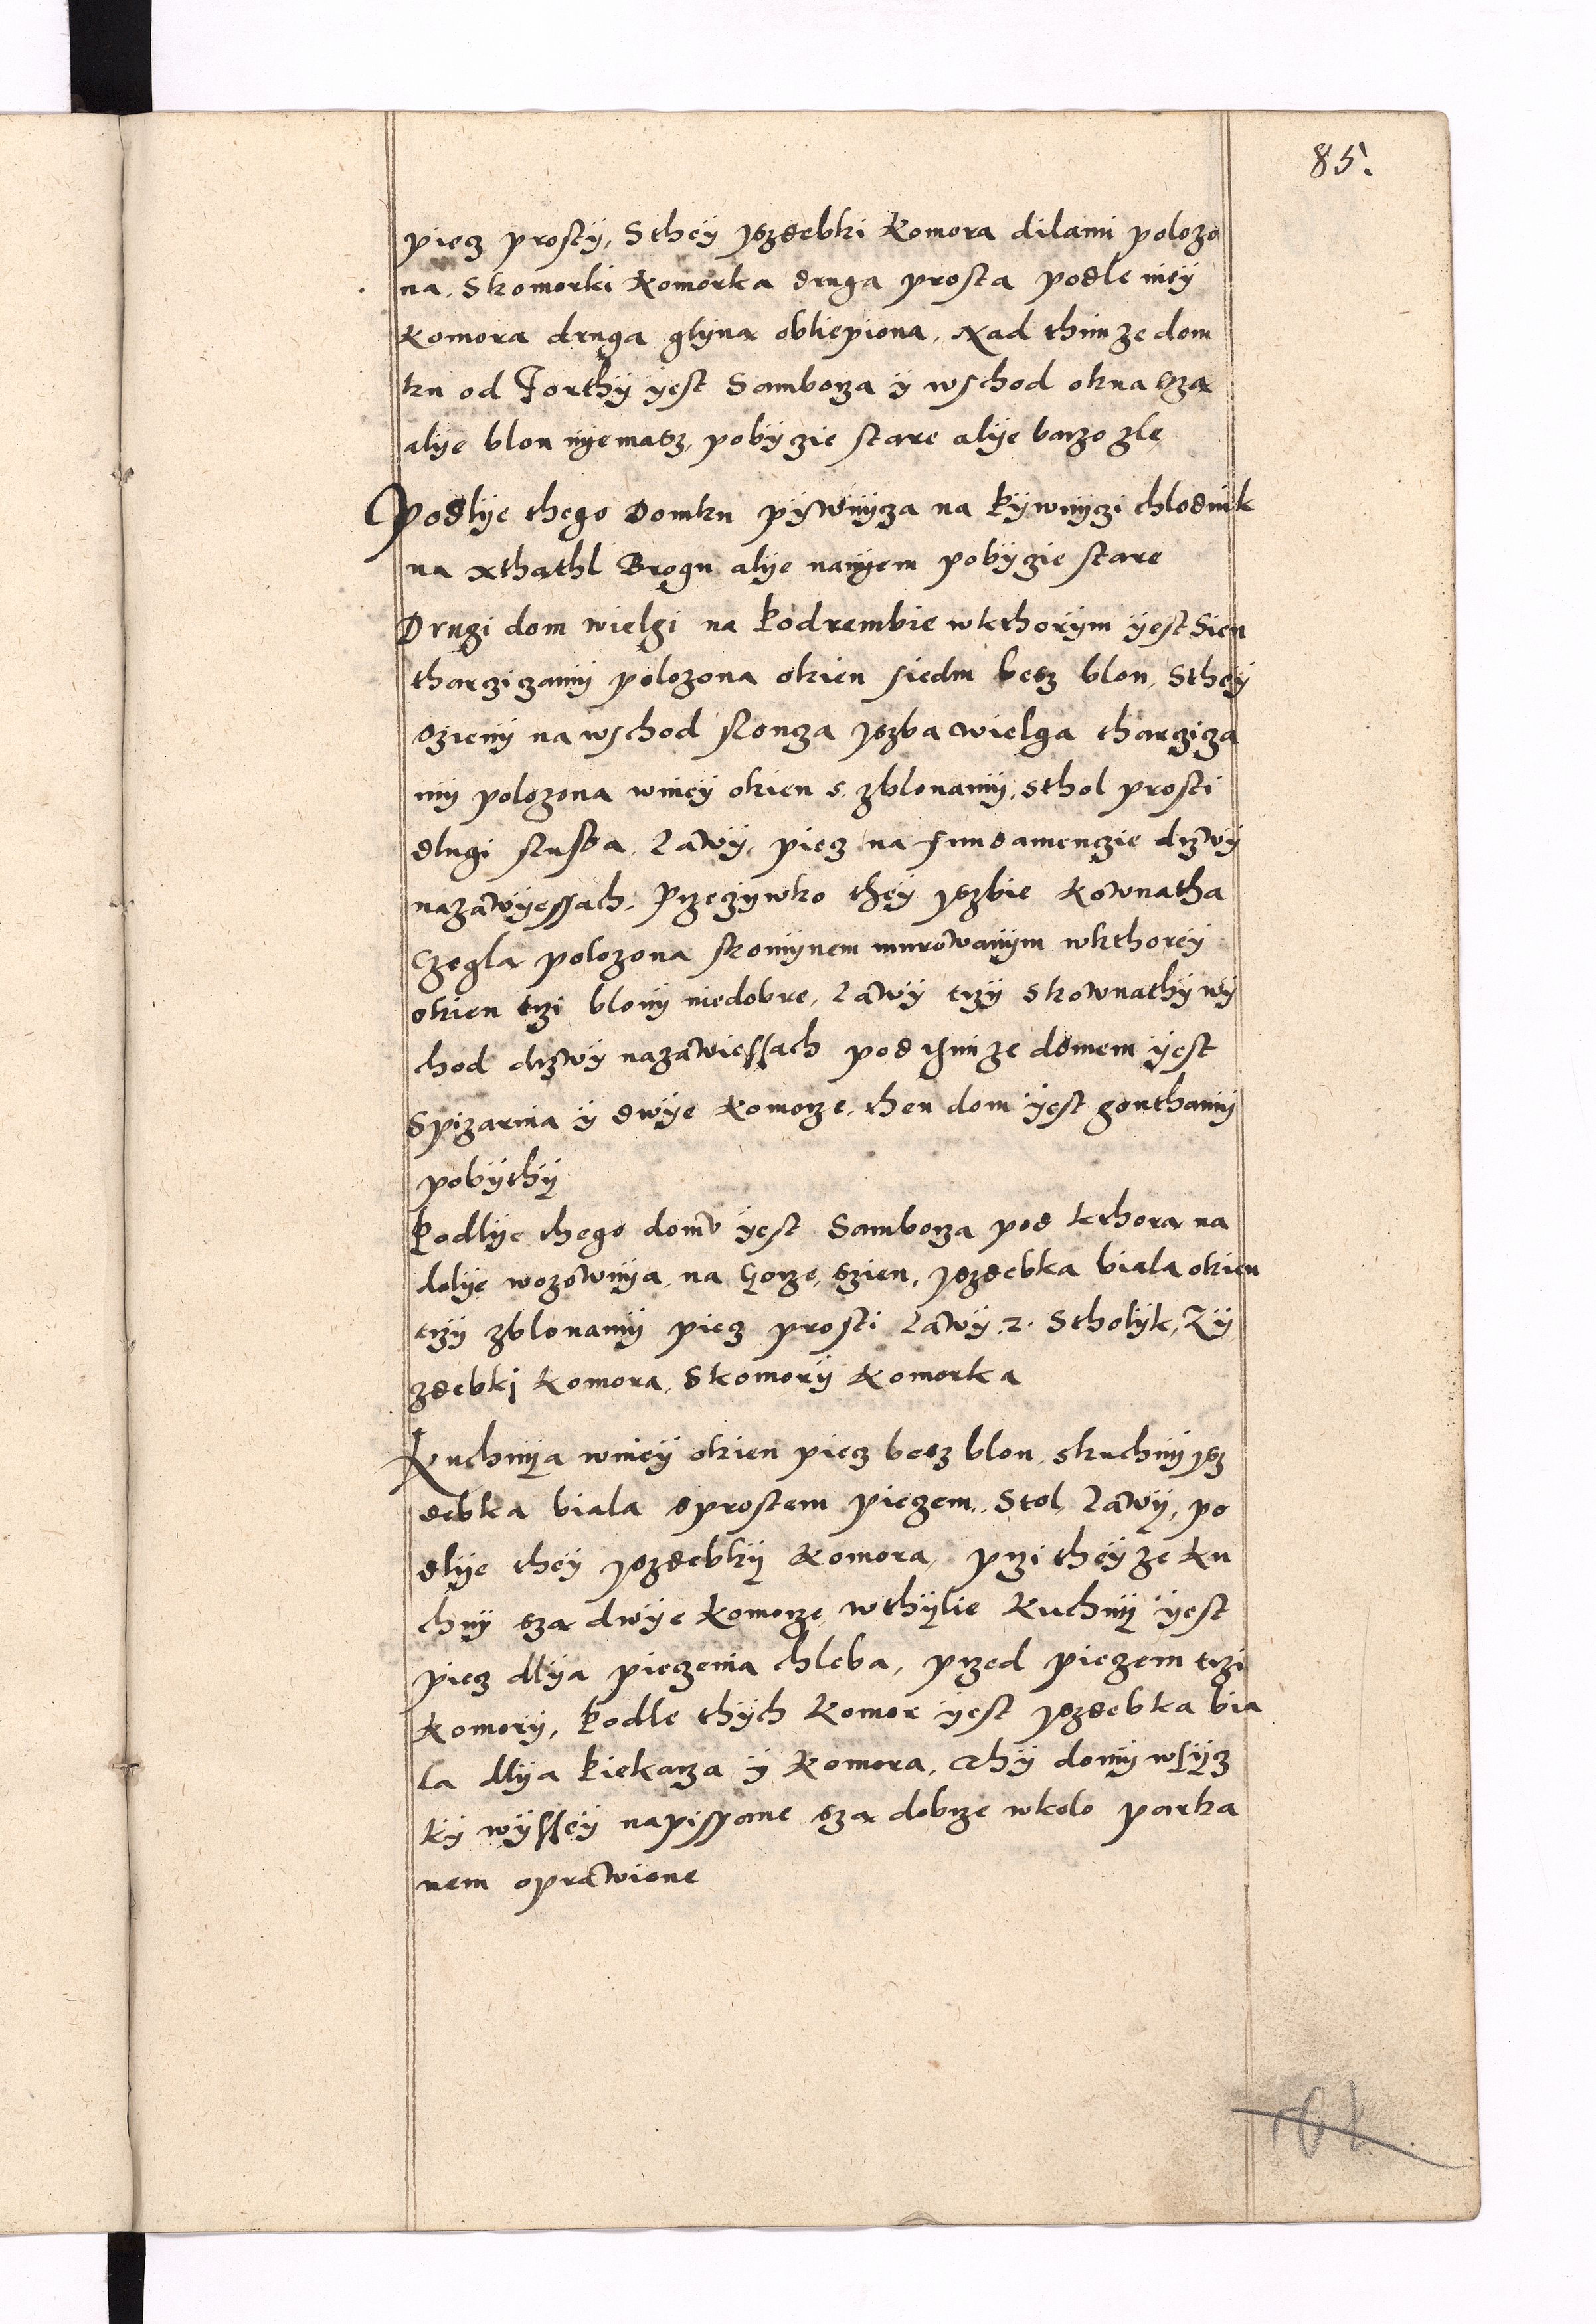 85.
piecz prosty, Sthey yszdebki Komora dilami polozo
na, Skomorki Komorka druga prosta podle niey
Komora druga glyna obliepiona, Nad thimze dom
ku od Forthy yest Samborza y wschod okna sza
alye blon nyemasz, pobyczie stare alye barzo zle
Podlye thego Domku pywnycza na Pywnyczi chlodnik
na xthathl Brogu alye nanyem pobyczie stare
Drugi dom wielgi na Podrembie wkthorym yest Sien
tharcziczamy polozona okien siedm besz blon, Sthey
szieny na wschod sloncza yszba wielga tharczicza
my polozona winiey okien 5 zblonamy, sthol prosti
dlugi sluszba, Lawy, piecz na fundamenczie drzwy
nazawyessach, Przeczywko they yszbie Kownatha
Czegla polozona skomynem murowanym wkthorey
okien trzi blony niedobre, Lawy trzy skownathy wy
chod drzwy nazawiessach pod thimze domem yest
Spizarnia y dwye Komorze, then dom yest gonthamy
pobythy
Podlye thego domv yest Samborza pod kthora na
dolye wozownya, na Gorze, szien, yszdebka biala okien
trzy zblonamy piecz prosti Lawy .2. Stholyk, Zy
zdebki Komora, Skomory Komorka
Kuchnya winiey okien piecz besz blon, skuchny ysz
debka biala sprostem pieczem, Stol, Lawy, po
dlye they yszdebky Komora, przi theyze Ku
chny sza dwye Komorze, wthylie Kuchny yest
piecz dlya pieczenia chleba, przed pieczem trzi
Komory, Podle thych Komor yest yszdebka bia
la dlya Piekarza y Komora, Thy domy wssysz
ky wyssey napissane sza dobrze wkolo parka
nem oprawione